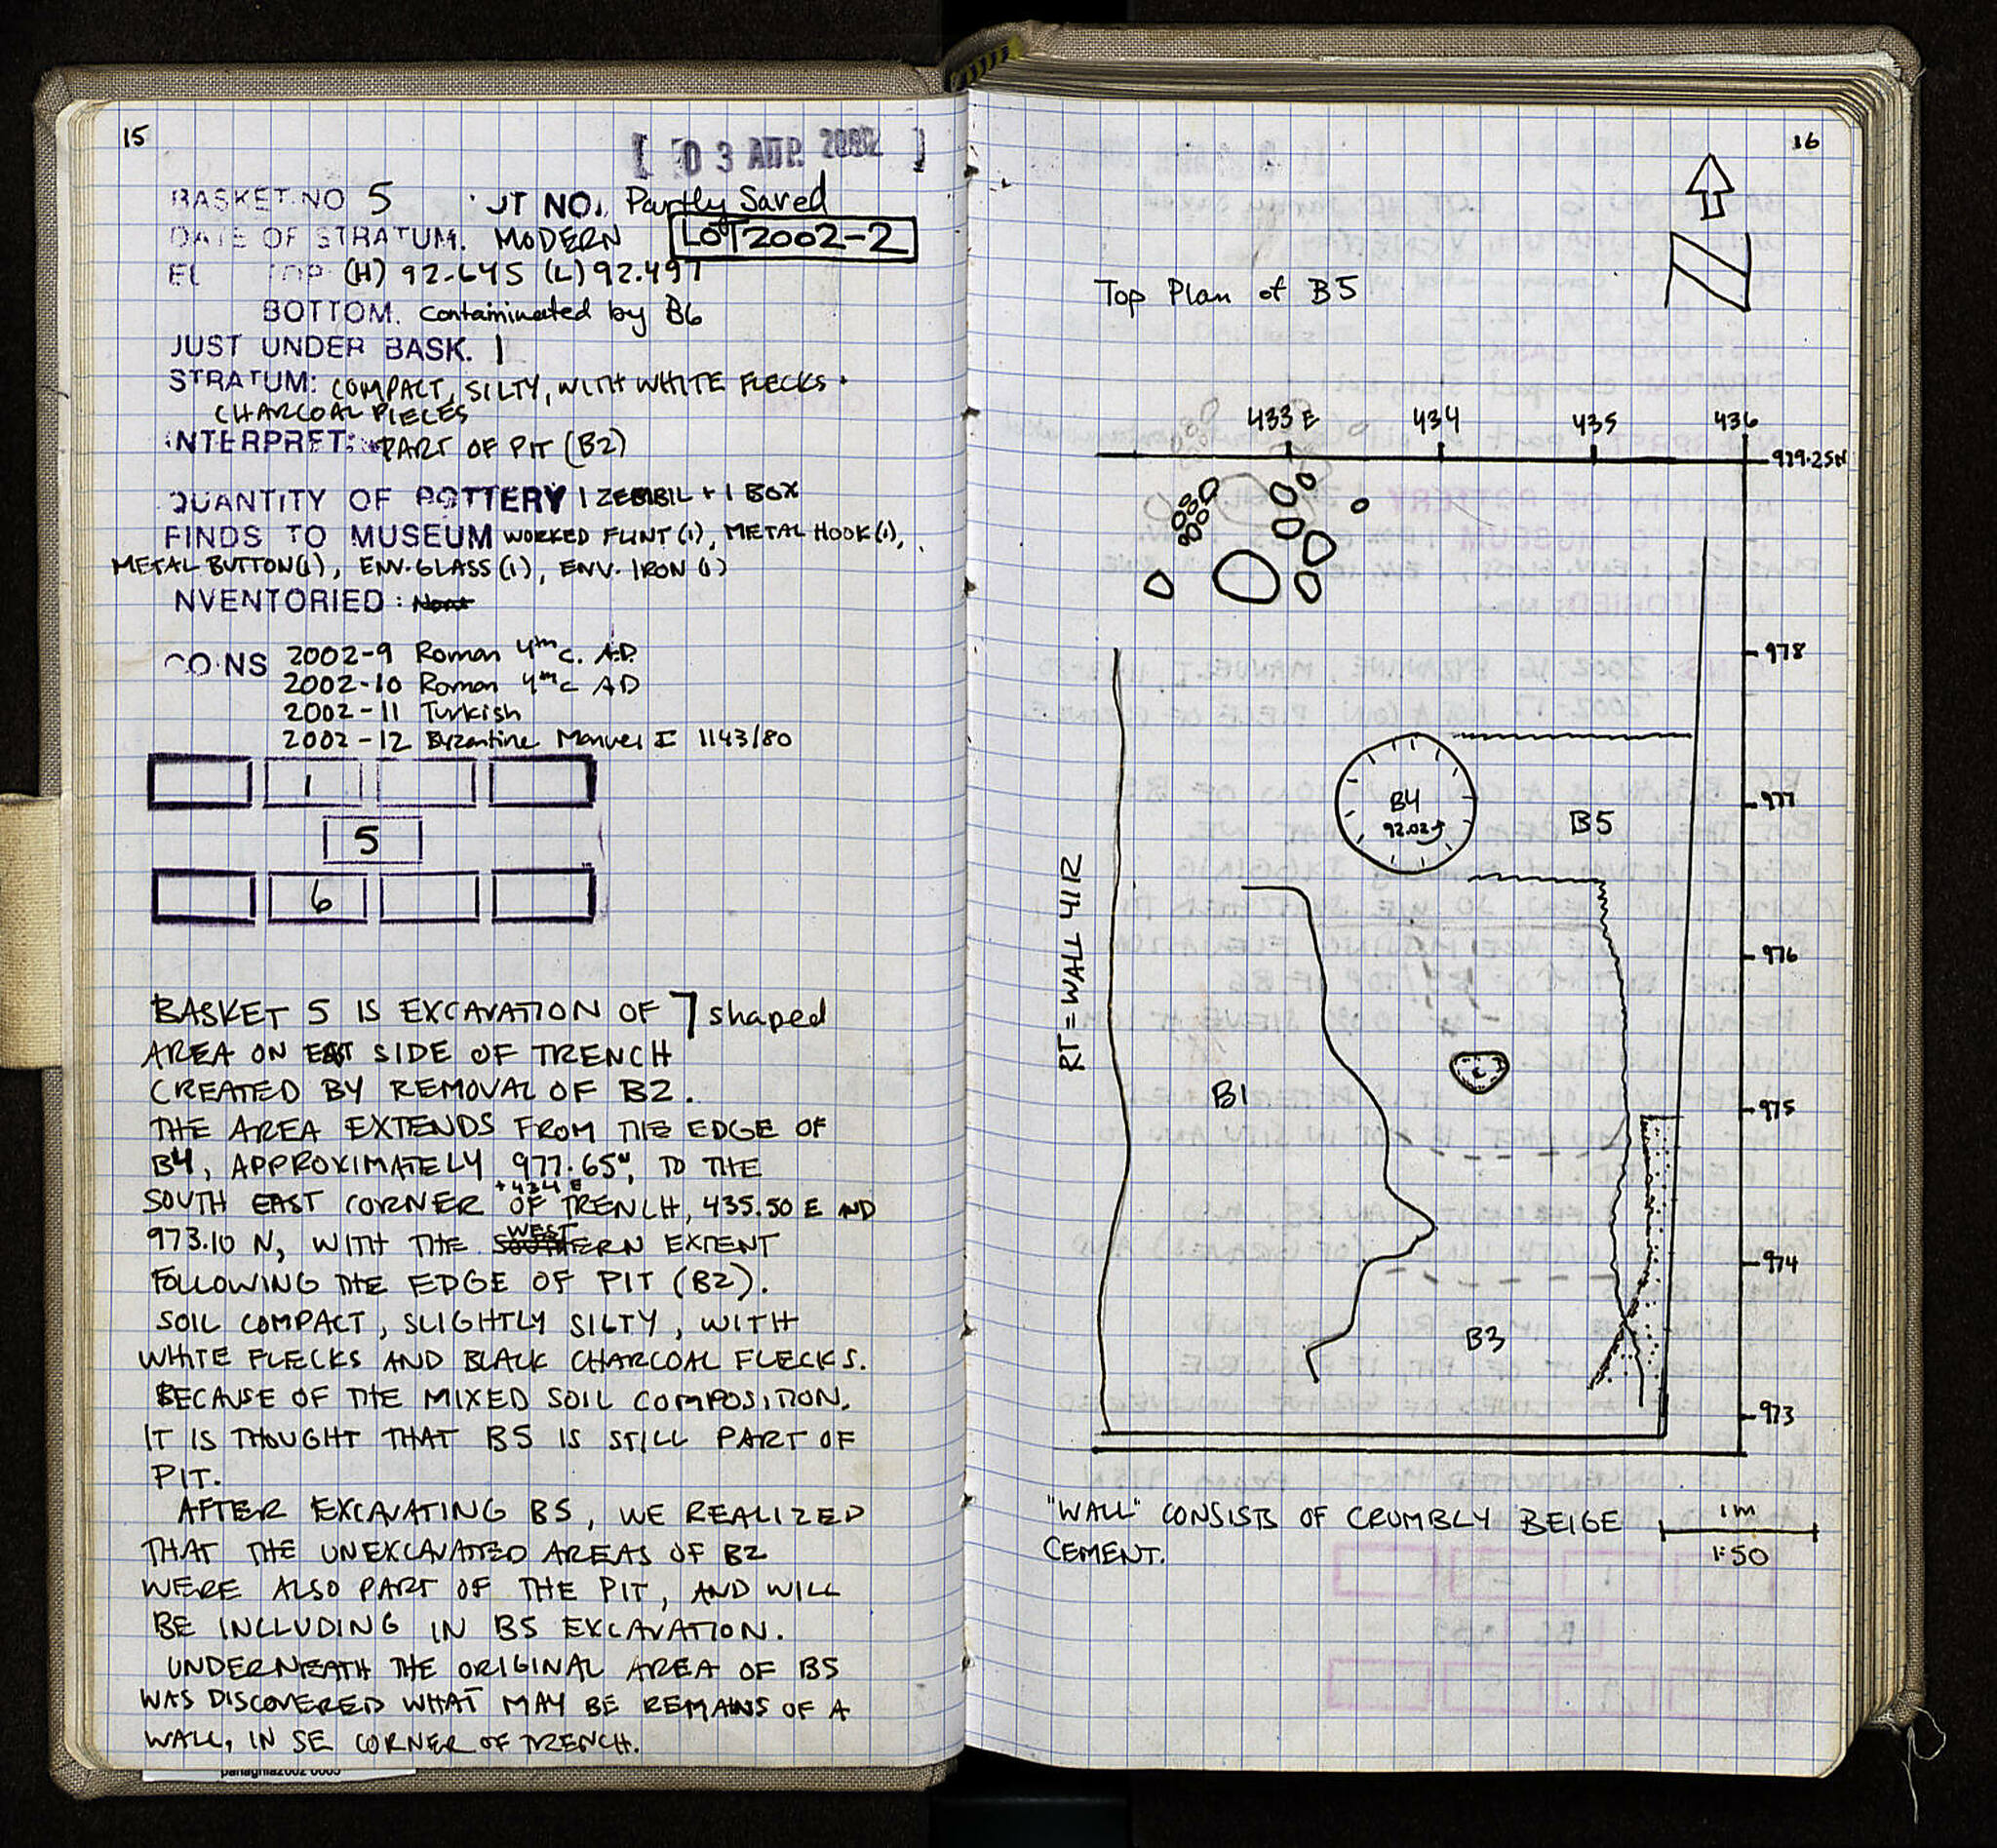 15
[ 03 ΑΠΡ. 2002 ]
BASKET NO 5 OT NO. Partly Saved
DATE OF STRATUM. MODERN LOT 2002-2
EL TOP (H) 92.645 (L) 92.497
BOTTOM. contaminated by B6
JUST UNDER BASK. 1
STRATUM: COMPACT, SILTY, WITH WHITE FLECKS +
CHARCOAL PIECES
INTERPRET: PART OF PIT (B2)
QUANTITY OF POTTERY 1 ZEMBIL + 1 BOX
FINDS TO MUSEUM WORKED FLINT (1), METAL HOOK (1),
METAL BUTTON (1), ENV. GLASS (1), ENV. IRON (1)
NVENTORIED: None
COINS 2002-9 Roman 4th c. A.D.
2002-10 Roman 4th c AD
2002-11 Turkish
2002-12 Byzantine Manuel I 1143/80
1
5
6
BASKET 5 IS EXCAVATION OF 7 shaped
AREA ON EAST SIDE OF TRENCH
CREATED BY REMOVAL OF B2.
THE AREA EXTENDS FROM THE EDGE OF
B4, APPROXIMATELY 977.65N, TO THE
+434 E
SOUTH EAST CORNER OF TRENCH, 435.50 E AND
WEST
973.10 N, WITH THE SOUTHERN EXTENT
FOLLOWING THE EDGE OF PIT (B2).
SOIL COMPACT, SLIGHTLY SILTY, WITH
WHITE FLECKS AND BLACK CHARCOAL FLECKS.
BECAUSE OF THE MIXED SOIL COMPOSITION,
IT IS THOUGHT THAT B5 IS STILL PART OF
PIT.
AFTER EXCAVATING B5, WE REALIZED
THAT THE UNEXCAVATED AREAS OF B2
WERE ALSO PART OF THE PIT, AND WILL
BE INCLUDING IN B5 EXCAVATION.
UNDERNEATH THE ORIGINAL AREA OF B5
WAS DISCOVERED WHAT MAY BE REMAINS OF A
WALL, IN SE CORNER OF TRENCH.
16
Top Plan of B5
433 E 434 435 436
979.25N
978
977
976
975
974
973
B4
92.02
B5
RT = WALL 41R
B1
B3
"WALL" CONSISTS OF CRUMBLY BEIGE
CEMENT.
1m
1:50